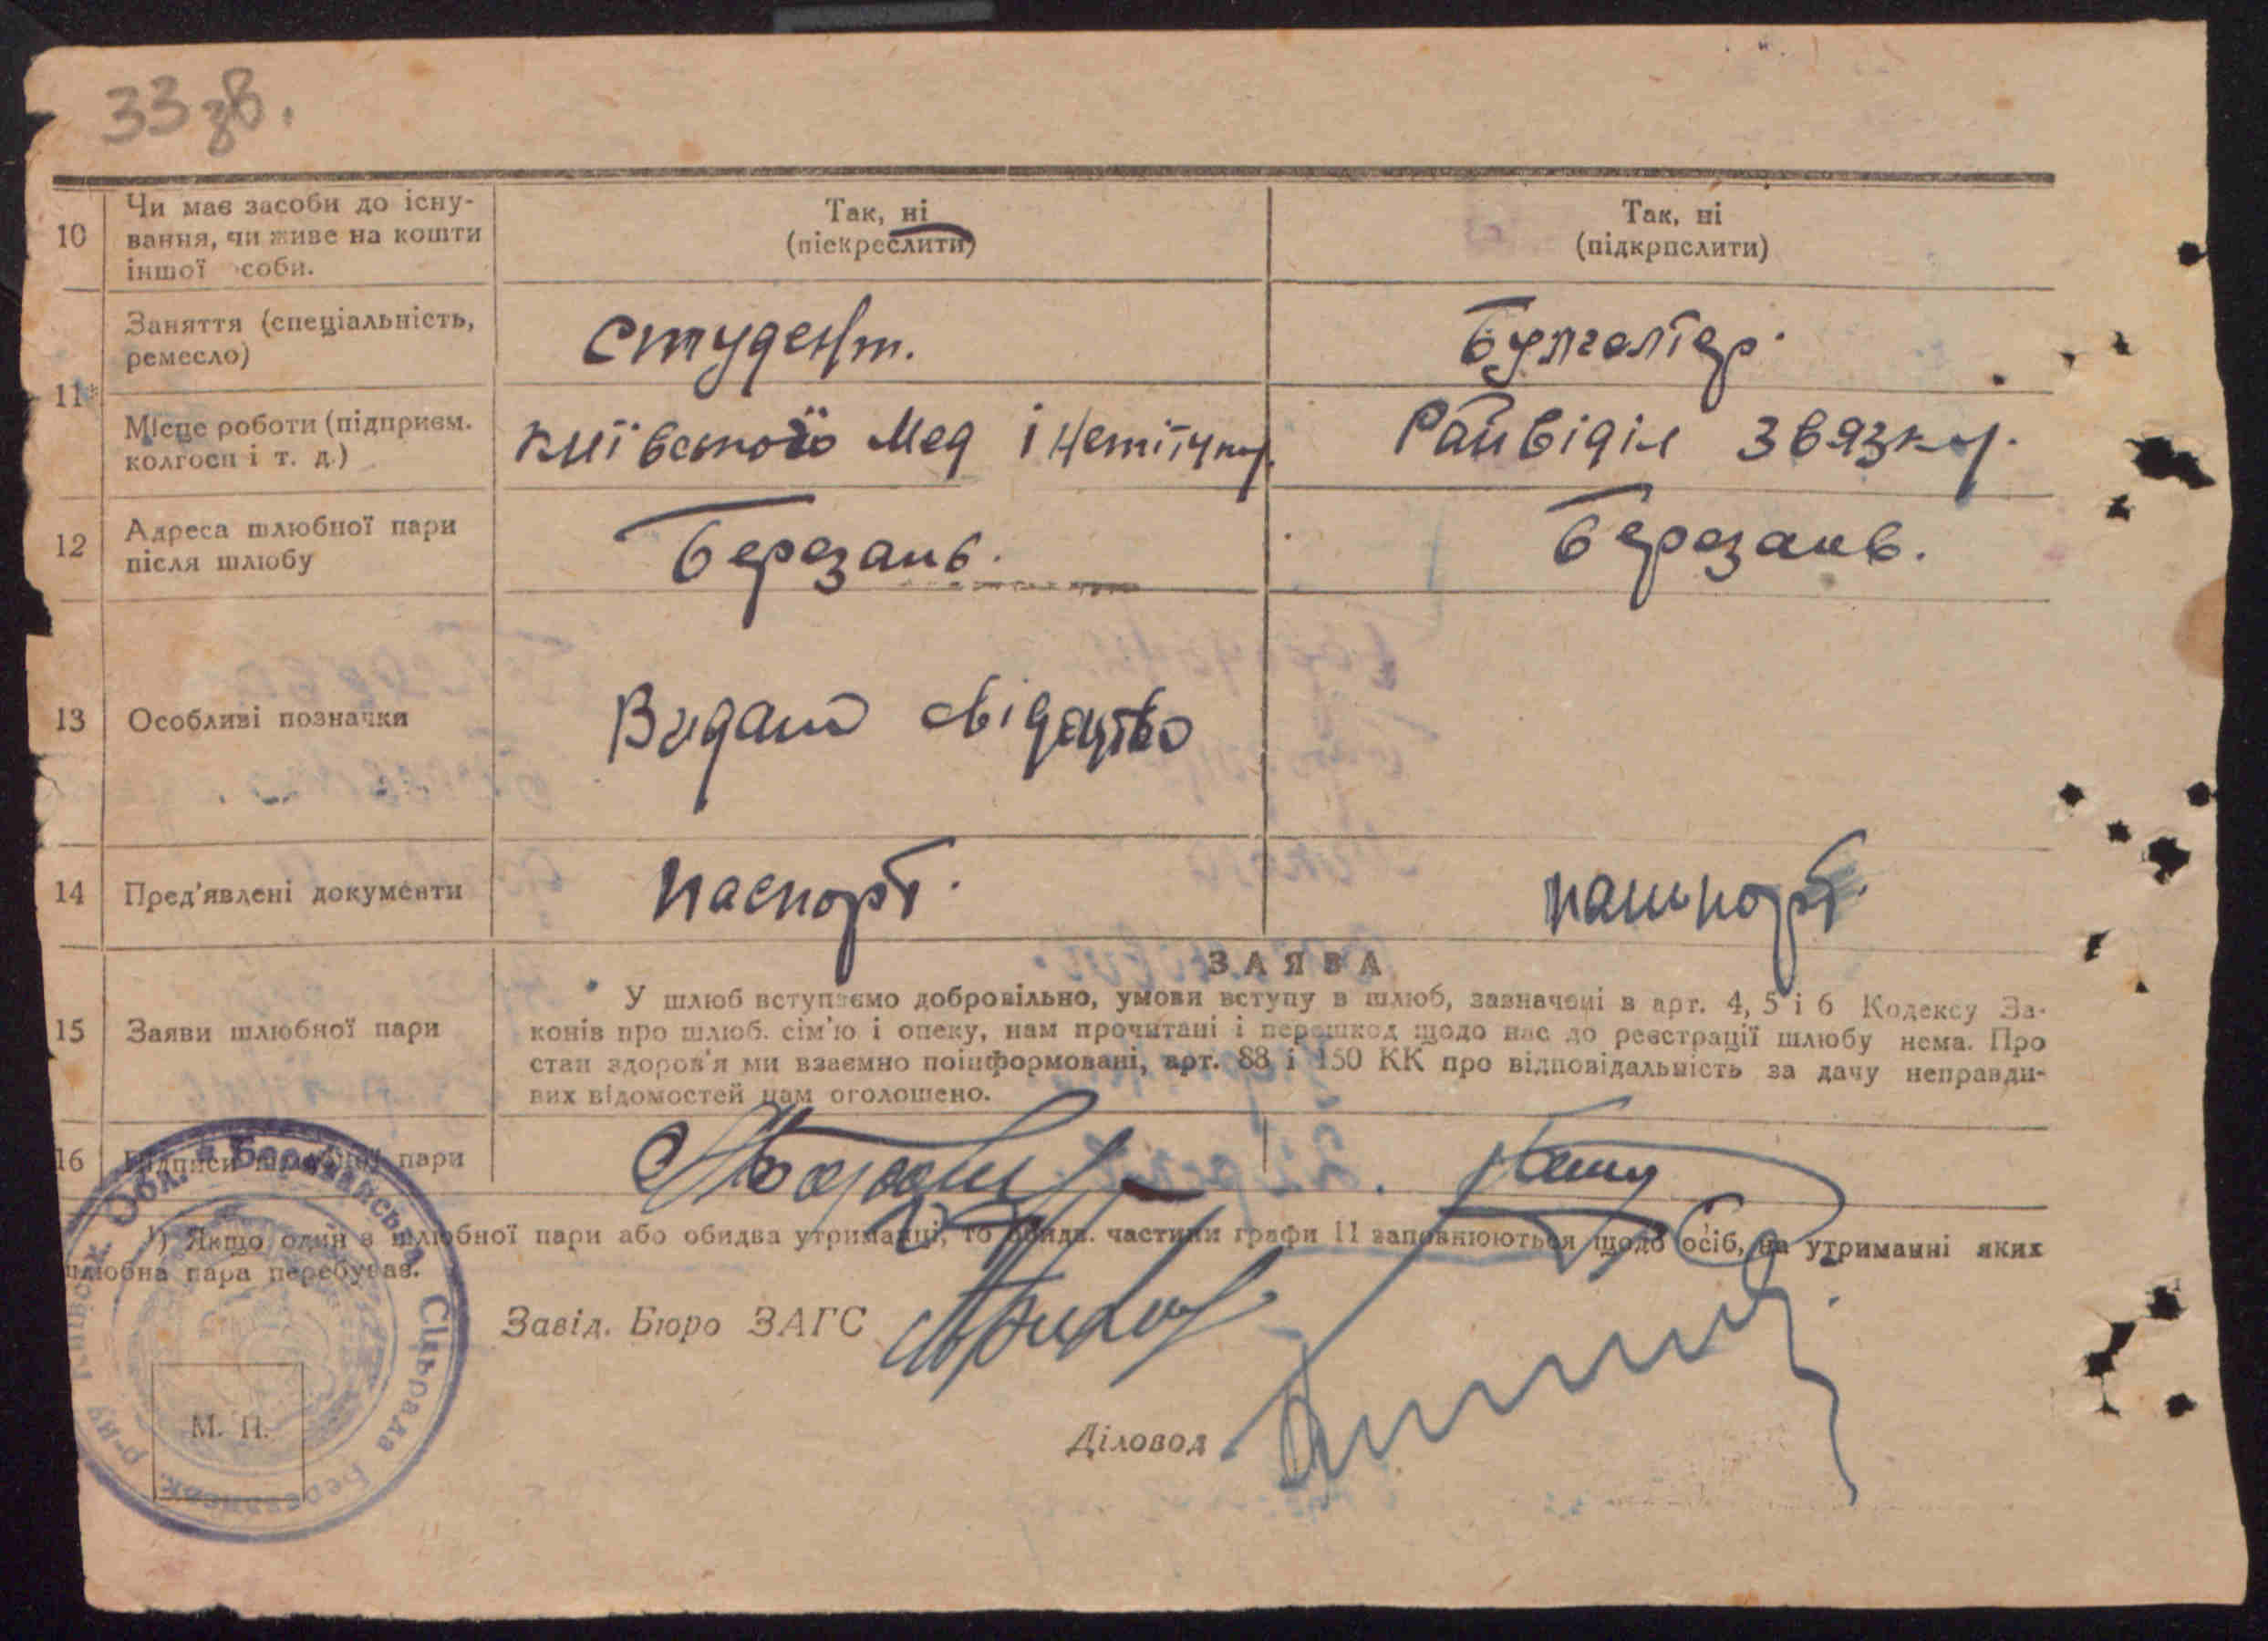 33 зв.
10
Чи має засоби до існу-
вання, чи живе на кошти
іншої особи.
Так, ні
(піекреслити)
Так, ні
(підкрпслити)
11
Заняття (спеціальність,
ремесло)
Студент.
Бухгалтер.
Місце роботи (підприєм.
колгосп і т. д.)
Київського Мед інстітуту.
Райвіділ звязку.
12
Адреса шлюбної пари
після шлюбу
Березань.
Березань.
13
Особливі позначки
Видано свідоцтво
14
Пред'явлені документи
паспорт.
пашпорт.
15
Заяви шлюбної пари
ЗАЯВА
У шлюб вступаємо добровільно, умови вступу в шлюб, зазначені в арт. 4, 5 і 6 Кодексу За-
конів про шлюб. сім'ю і опеку, нам прочитані і перешкод щодо нас до реєстрації шлюбу нема. Про
стан здоров'я ми взаємно поінформовані, арт. 88 і 150 КК про відповідальність за дачу неправди-
вих відомостей нам оголошено.
16
Підписи шлюбної пари
¹) Якщо один з шлюбної пари або обидва утриманці, то обидв. частини графи 11 заповнюються щодо осіб, на утриманні яких
шлюбна пара перебуває.
Завід. Бюро ЗАГС
Діловод
М. П.
Березанська Сільрада Березанськ. р-ну Київськ. Обл.